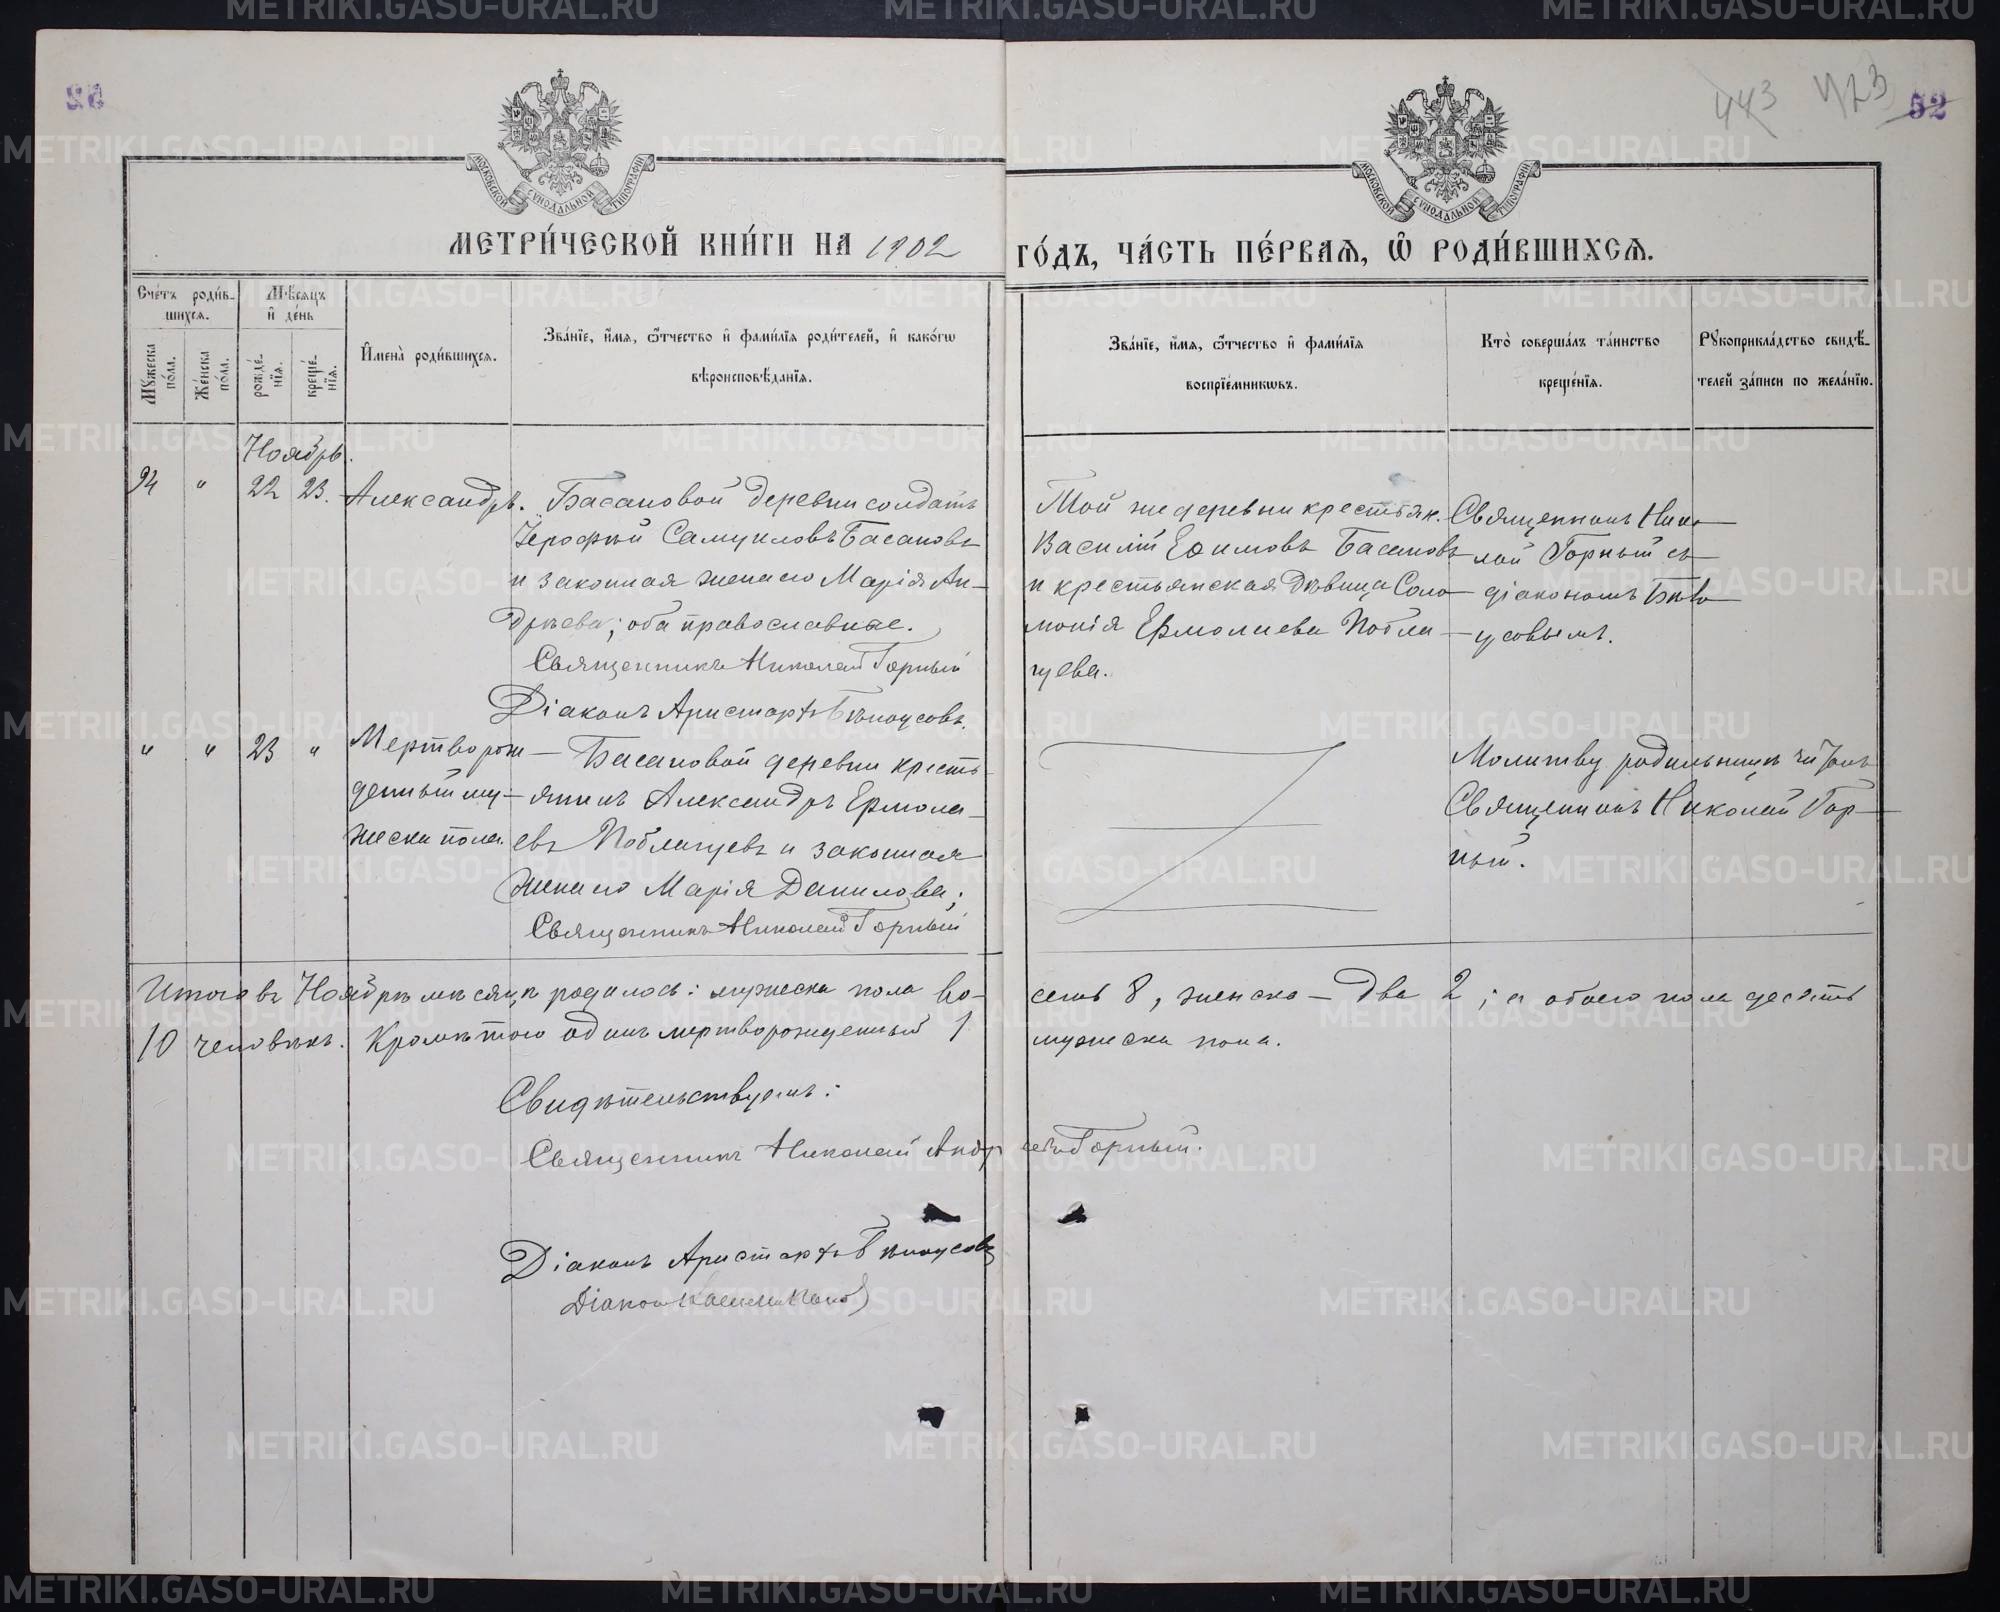 52
443 423 52
МОСКОВСКОЙ СѴНОДАЛЬНОЙ ТИПОГРАФІИ
МОСКОВСКОЙ СѴНОДАЛЬНОЙ ТИПОГРАФІИ
МЕТРИ́ЧЕСКОЙ КНИ́ГИ НА 1902 ГО́ДЪ, ЧА́СТЬ ПЕ́РВАЯ, Ѿ РОДИ́ВШИХСЯ.
Сче́тъ роди́в-
шихся.
Мѣ́сяцъ
и҆ де́нь
Му́жеска
по́ла.
Же́нска
по́ла.
рожде́-
нїя.
креще́-
нїя.
И҆мена̀ роди́вшихся.
Зва́нїе, и҆́мя, ѻ҆́тчество и҆ фами́лїя роди́телей, и҆ како́гѡ
вѣроисповѣ́данїя.
Зва́нїе, и҆́мя, ѻ҆́тчество и҆ фами́лїя
воспрїе́мникѡвъ.
Кто̀ соверша́лъ та́инство
креще́нїя.
Рукоприкла́дство свидѣ́-
телей за́писи по жела́нїю.
Ноябрь.
94 " 22 23. Александръ. Басановой деревни солдатъ
Іерофѣй Самуиловъ Басановъ
и законная жена его Марія Ан-
дреева; оба православные.
Священникъ Николай Горный
Діаконъ Аристархъ Бѣлоусовъ.
Той же деревни крестьян.
Василій Ефимовъ Басановъ
и крестьянская дѣвица Соло-
монія Ермолаева Поблa-
гуева.
Священникъ Нико-
лай Горный съ
діакономъ Бѣло-
усовымъ.
" " 23 " Мертворож-
денный му-
жеска пола.
Басановой деревни кресть-
янинъ Александръ Ермола-
евъ Поблагуевъ и законная
жена его Марія Данилова;
Священникъ Николай Горный
Молитву родильницѣ читалъ
Священникъ Николай Гор-
ный.
Итого въ Ноябрѣ мѣсяцѣ родилось: мужеска пола во- семь 8, женска - два 2; а обоего пола десять
10 человѣкъ. Кромѣ того одинъ мертворожденный 1 мужеска пола.
Свидѣтельствуемъ:
Священникъ Николай Андреевъ Горный.
Діаконъ Аристархъ Бѣлоусовъ
Діаконъ
METRIKI.GASO-URAL.RU